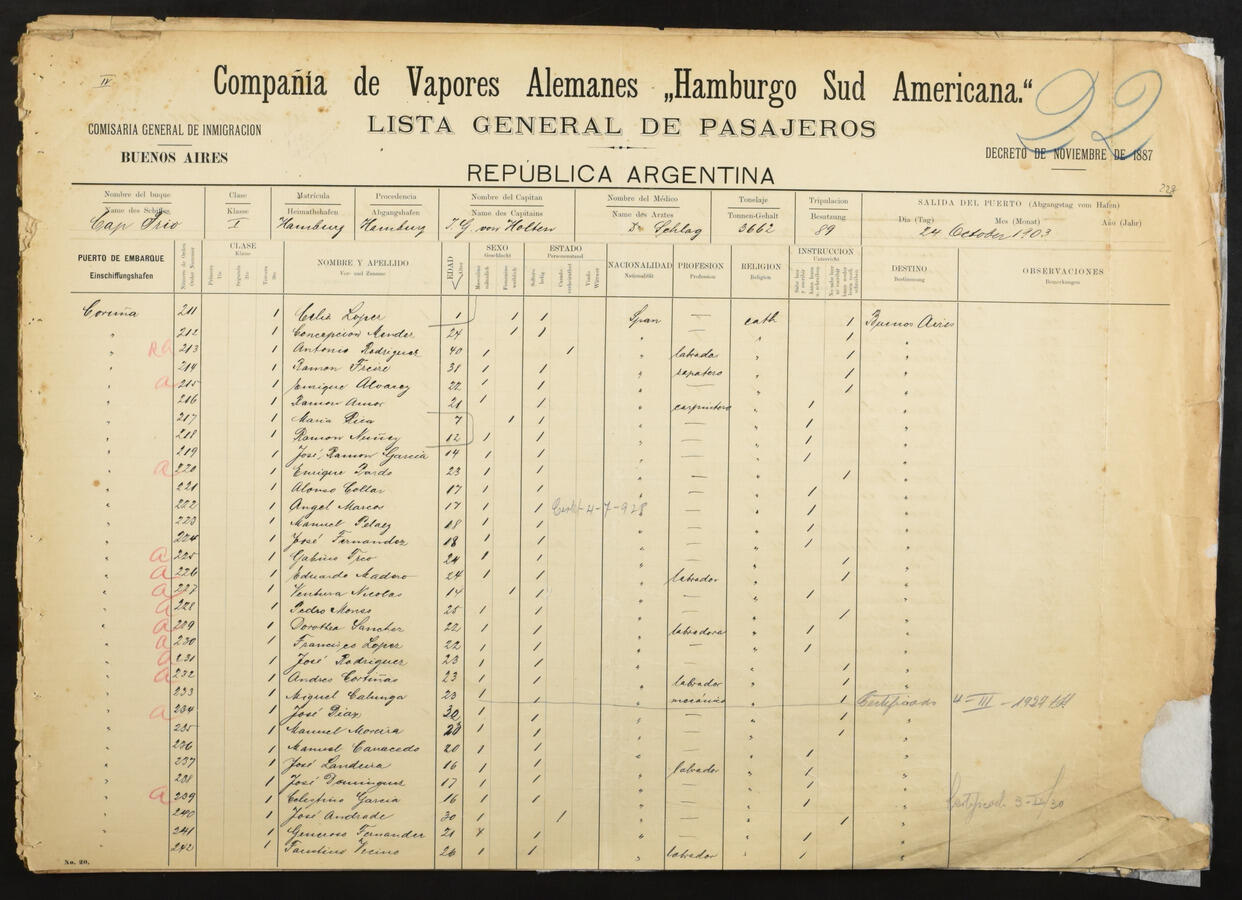 IV
Compañía de Vapores Alemanes „Hamburgo Sud Americana.“
22
COMISARIA GENERAL DE INMIGRACION
BUENOS AIRES
LISTA GENERAL DE PASAJEROS
DECRETO DE NOVIEMBRE DE 1887
REPÚBLICA ARGENTINA
Nombre del buque Clase Matrícula Procedencia Nombre del Capitan Nombre del Médico Tonelaje Tripulacion SALIDA DEL PUERTO (Abgangstag vom Hafen)
Name des Schiffes Klasse Heimathshafen Abgangshafen Name des Capitains Name des Arztes Tonnen-Gehalt Besatzung Dia (Tag) Mes (Monat) Año (Jahr)
Cap Frio I Hamburg Hamburg J. G. von Holten Dr. Schlag 3662 89 24 October 1903
PUERTO DE EMBARQUE CLASE NOMBRE Y APELLIDO EDAD SEXO ESTADO NACIONALIDAD PROFESION RELIGION INSTRUCCION DESTINO OBSERVACIONES
Einschiffungshafen Klasse Vor- und Zuname Geschlecht Personenstand Nationalität Profession Religion Unterricht Bestimmung Bemerkungen
Coruña 211 1 Celia Lopez 1 1 1 Span — cath 1 Buenos Aires
" 212 1 Concepcion Mendez 24 1 1 " — " 1 "
" 213 1 Antonio Rodriguez 40 1 1 " labrador " 1 "
" 214 1 Ramon Freire 38 1 1 " zapatero " 1 "
" a 215 1 Enrique Alvarez 22 1 1 " — " 1 "
" 216 1 Ramon Amor 21 1 1 " carpintero " 1 "
" 217 1 Maria Rica 7 1 1 " — " 1 "
" 218 1 Ramon Nuñez 12 1 1 " — " 1 "
" 219 1 José Ramon Garcia 14 1 1 " — " 1 "
" a 220 1 Enrique Pardo 23 1 1 " — " 1 "
" 221 1 Alonso Collar 17 1 1 " — " 1 "
" 222 1 Angel Marcos 17 1 1 4-7-928 " — " 1 "
" 223 1 Manuel Pelaez 18 1 1 " — " 1 "
" 224 1 José Fernandez 18 1 1 " — " 1 "
" a 225 1 Gabino 24 1 1 " — " 1 "
" a 226 1 Eduardo Madero 24 1 1 " labrador " 1 "
" a 227 1 Ventura Nicolas 14 1 1 " — " 1 "
" a 228 1 Pedro 25 1 1 " — " 1 "
" a 229 1 Dorothea Sanchez 22 1 1 " labradora " 1 "
" a 230 1 Francisco Lopez 22 1 1 " — " 1 "
" a 231 1 José Rodriguez 23 1 1 " — " 1 "
" a 232 1 Andres Cortiñas 23 1 1 " labrador " 1 "
" 233 1 Miguel 23 1 1 " mecánico " 1 Certificado 4-III-1927
" a 234 1 José Diaz 30 1 1 " — " 1 "
" 235 1 Manuel Moreira 20 1 1 " — " 1 "
" 236 1 Manuel Canacedo 20 1 1 " — " 1 "
" 237 1 José Landeira 16 1 1 " labrador " 1 "
" 238 1 José Dominguez 17 1 1 " — " 1 "
" a 239 1 Celestino Garcia 16 1 1 " — " 1 "
" 240 1 José Andrade 30 1 1 " — " 1 "
" 241 1 Generoso Fernandez 21 1 1 " — " 1 "
" 242 1 Faustino Vecino 26 1 1 " labrador " 1 "
No. 20.